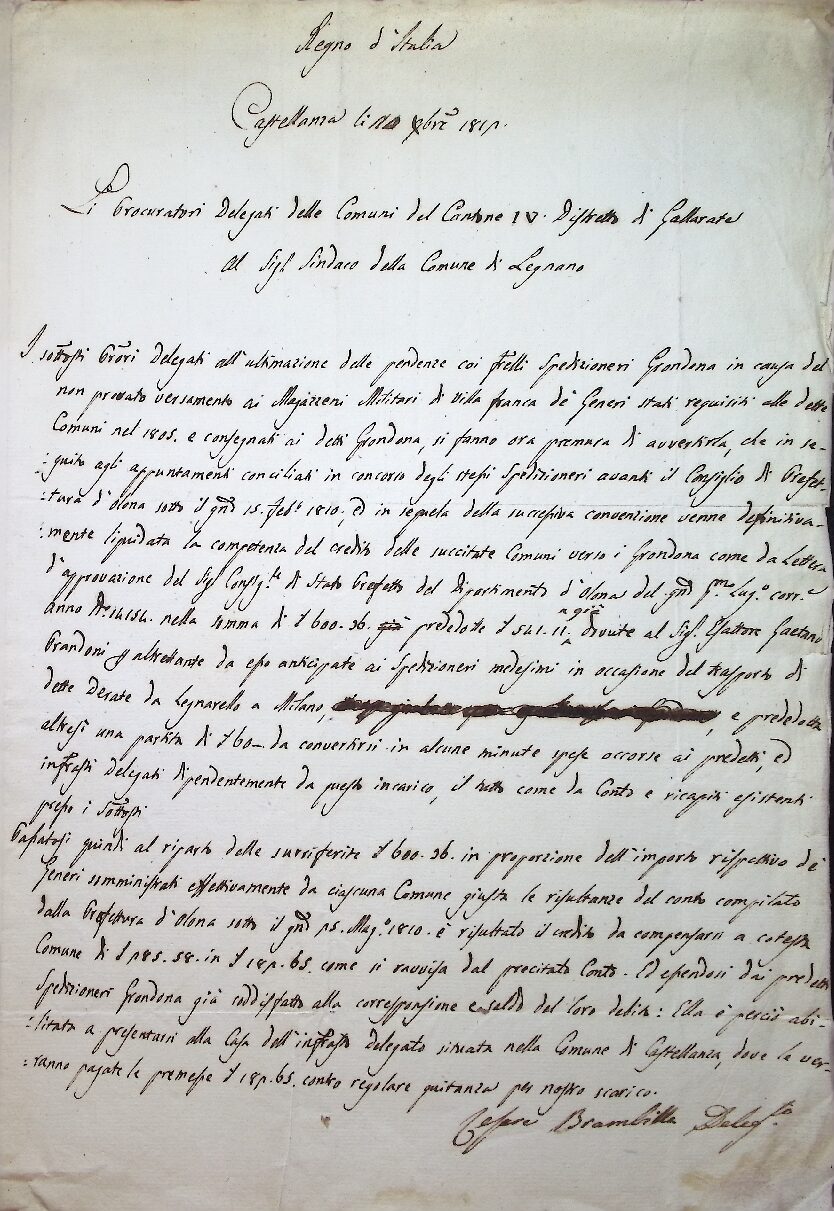 Regno d'Italia
Castellanza li 8bre 1811.
Li Procuratori Delegati delle Comuni del Cantone IV. Distretto di Gallarate
Al Sigr Sindaco della Comune di Legnano
I sottosti Prori Delegati all'ultimazione delle pendenze coi frelli Spedizioneri Grondona in causa del
non provato versamento ai Magazzeni Militari di Villa franca de' Generi stati requisiti alle dette
Comuni nel 1805. e consegnati ai detti Grondona, si fanno ora premura di avvertirla, che in se-
:guito agli appuntamenti conciliati in concorso degli stessi Spedizioneri avanti il Consiglio di Prefet-
:tura d'Olona sotto il gno 15. febo 1810, ed in sequela della successiva convenzione venne definitiva-
:mente liquidata la competenza del credito delle succitate Comuni verso i Grondona come da Lettera
d'approvazione del Sigr Consigre di Stato Prefetto del Dipartimento d'Olona del gno pmo Lugo corre
anno No 14154. nella somma di £ 600.36. già prededotte £ 541.11. dovute al Sigr Esattore Gaetano
Brandoni p altrettante da esso anticipate ai Spedizioneri medesimi in occasione del trasporto di
dette Derate da Legnarello a Milano, , e prededotta
altresì una partita di £ 60 - da convertirsi in alcune minute spese occorse ai predetti, ed
infrasti delegati dipendentemente da questo incarico, il tutto come da Conto e ricapiti esistenti
presso i Sottosti
Passatosi quindi al riparto delle surriferite £ 600.36. in proporzione dell'importo rispettivo de'
Generi somministrati effettivamente da ciascuna Comune giusta le risultanze del conto compilato
dalla Prefettura d'Olona sotto il gno 15. Mago 1810. è risultato il credito da compensarsi a cotesta
Comune di £ 185.58. in £ 181.65. come si ravvisa dal precitato Conto. Ed essendosi dai predetti
Spedizioneri Grondona già soddisfatto alla corresponsione e saldo del loro debito: Ella è perciò abi-
:litata a presentarsi alla Casa dell'infrasto Delegato situata nella Comune di Castellanza, dove le ver-
:ranno pagate le premesse £ 181.65. contro regolare quitanza per nostro scarico.
Cesare Brambilla Delegto